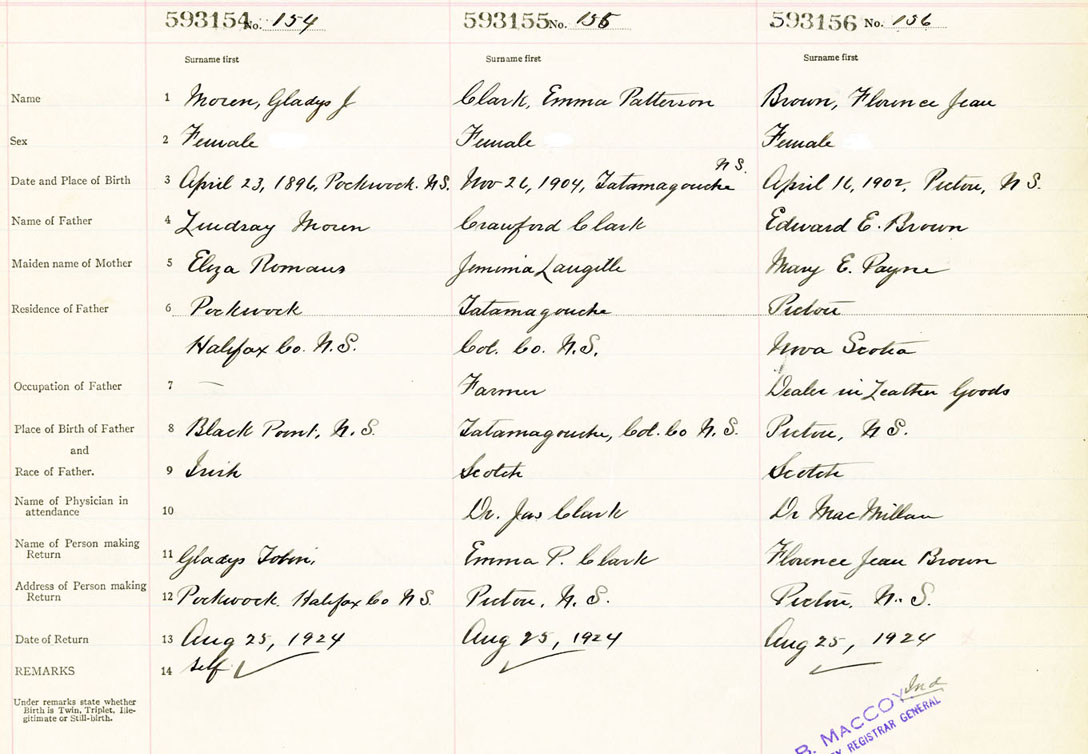 593154 No. 154 593155 No. 155 593156 No. 156
Surname first Surname first Surname first
Name 1 Moren, Gladys J Clark, Emma Patterson Brown, Florence Jean
Sex 2 Female Female Female
N.S.
Date and Place of Birth 3 April 23, 1896, Pockwock. N.S. Nov 26, 1904, Tatamagouche April 16, 1902, Pictou, N S.
Name of Father 4 Lindsay Moren Crawford Clark Edward E. Brown
Maiden name of Mother 5 Eliza Romans Jemimia Langille Mary E. Payne
Residence of Father 6 Pockwock Tatamagouche Pictou
Halifax Co. N.S. Col. Co. N.S. Nova Scotia
Occupation of Father 7 — Farmer Dealer in Leather Goods
Place of Birth of Father 8 Black Point, N.S. Tatamagouche, Col. Co N.S. Pictou, N S.
and
Race of Father. 9 Irish Scotch Scotch
Name of Physician in
attendance 10 Dr. Jas Clark Dr MacMillan
Name of Person making
Return 11 Gladys Tobin, Emma P. Clark Florence Jean Brown
Address of Person making
Return 12 Pockwock. Halifax Co N S. Pictou, N. S. Pictou, N. S.
Date of Return 13 Aug 25, 1924 Aug 25, 1924 Aug 25, 1924
REMARKS 14 self
Under remarks state whether
Birth is Twin, Triplet, Ille-
gitimate or Still-birth.
B. MACCOY
REGISTRAR GENERAL